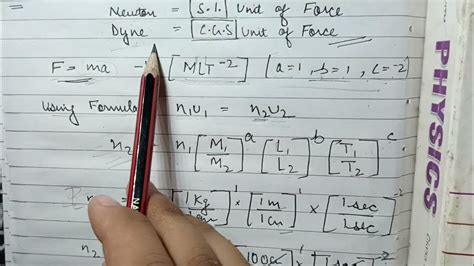 Newton = S.I. Unit of Force
Dyne = C.G.S Unit of Force
F = ma → [MLT⁻²] [a=1, b=1, c=-2]
Using Formula n₁u₁ = n₂u₂
n₂ = n₁ [M₁/M₂]ᵃ [L₁/L₂]ᵇ [T₁/T₂]ᶜ
[1 Kg/1 gm]¹ × [1m/1cm]¹ × [1sec/1sec]⁻²
n₂
PHYSICS